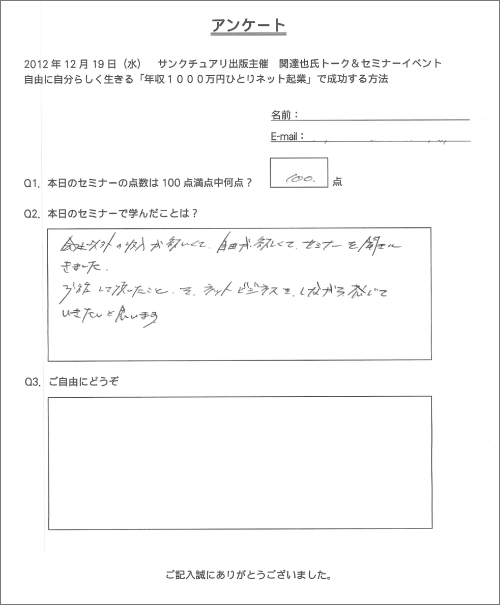 アンケート
2012年12月19日（水）　サンクチュアリ出版主催　関達也氏トーク＆セミナーイベント
自由に自分らしく生きる「年収１０００万円ひとりネット起業」で成功する方法
名前：
E-mail：
Q1．本日のセミナーの点数は100点満点中何点？ 100. 点
Q2．本日のセミナーで学んだことは？
会社以外の収入が欲しくて、自由が欲しくて、セミナーを聞きに
きました。
お話して頂いたこと、を、ネットビジネスを、しながら感じて
いきたいと思います
Q3．ご自由にどうぞ
ご記入誠にありがとうございました。